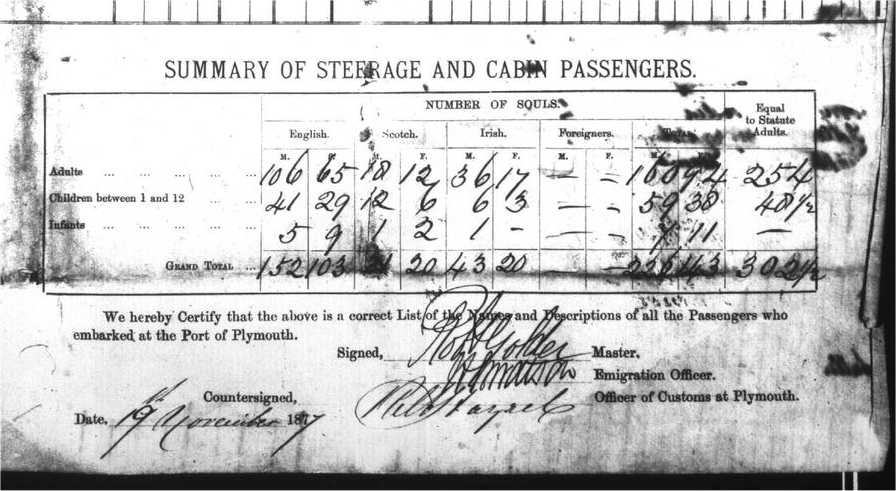 SUMMARY OF STEERAGE AND CABIN PASSENGERS.
NUMBER OF SOULS. Equal to Statute Adults.
English. Scotch. Irish. Foreigners. Total.
M. F. M. F. M. F. M. F. M. F.
Adults ... ... ... ... ... 106 65 18 12 36 17 — — 160 94 254
Children between 1 and 12 ... ... 41 29 12 6 6 3 — — 59 38 48½
Infants ... ... ... ... ... 5 9 1 2 1 - — — 7 11 —
GRAND TOTAL ... 152 103 31 20 43 20 — — 226 143 302½
We hereby Certify that the above is a correct List of the Names and Descriptions of all the Passengers who
embarked at the Port of Plymouth.
Signed, Golder Master.
Emigration Officer.
Countersigned, Officer of Customs at Plymouth.
Date, 19th November 1877